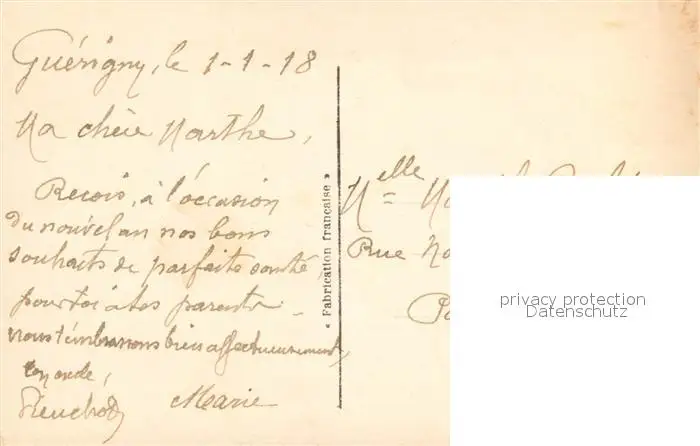 Guérigny, le 1-1-18
Ma chère Marthe,
Reçois, à l'occasion
du nouvel an nos bons
souhaits de parfaite santé,
pour toi à tes parents
nous t'embrassons bien affectueusement,
Marie
« Fabrication française »
Melle
Rue
privacy protection
Datenschutz